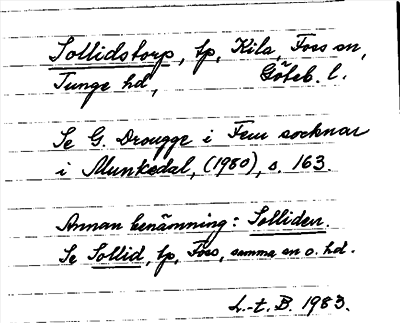 Sollidstorp, tp, Kila, Foss sn,
Tunge hd, Göteb. l.
Se G. Drougge i Fem socknar
i Munkedal, (1980), s. 163.
Annan benämning: Solliden.
Se Sollid, tp, Foss, samma sn o. hd.
L.-t. B. 1983.